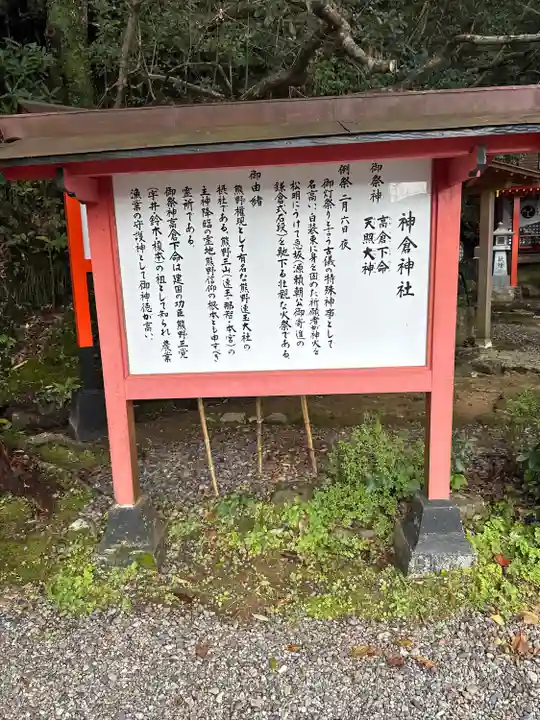 神倉神社
御祭神 高倉下命
天照大神
例祭 二月六日夜
御灯祭りと云う古儀の特殊神事として
名高い。白装束に身を固めた祈願者が神火を
松明にうけて急坂(源頼朝公御寄進の
鎌倉式石段)を馳下る壮観な火祭である。
御由緒
熊野権現として有名な熊野速玉大社の
摂社である。熊野三山(速玉・那智・本宮)の
主神降臨の霊地、熊野信仰の根本とも申すべき
霊所である。
御祭神高倉下命は建国の功臣、熊野三党
(宇井・鈴木・榎本)の祖として知られ、農業
漁業の守護神として御神徳が高い。